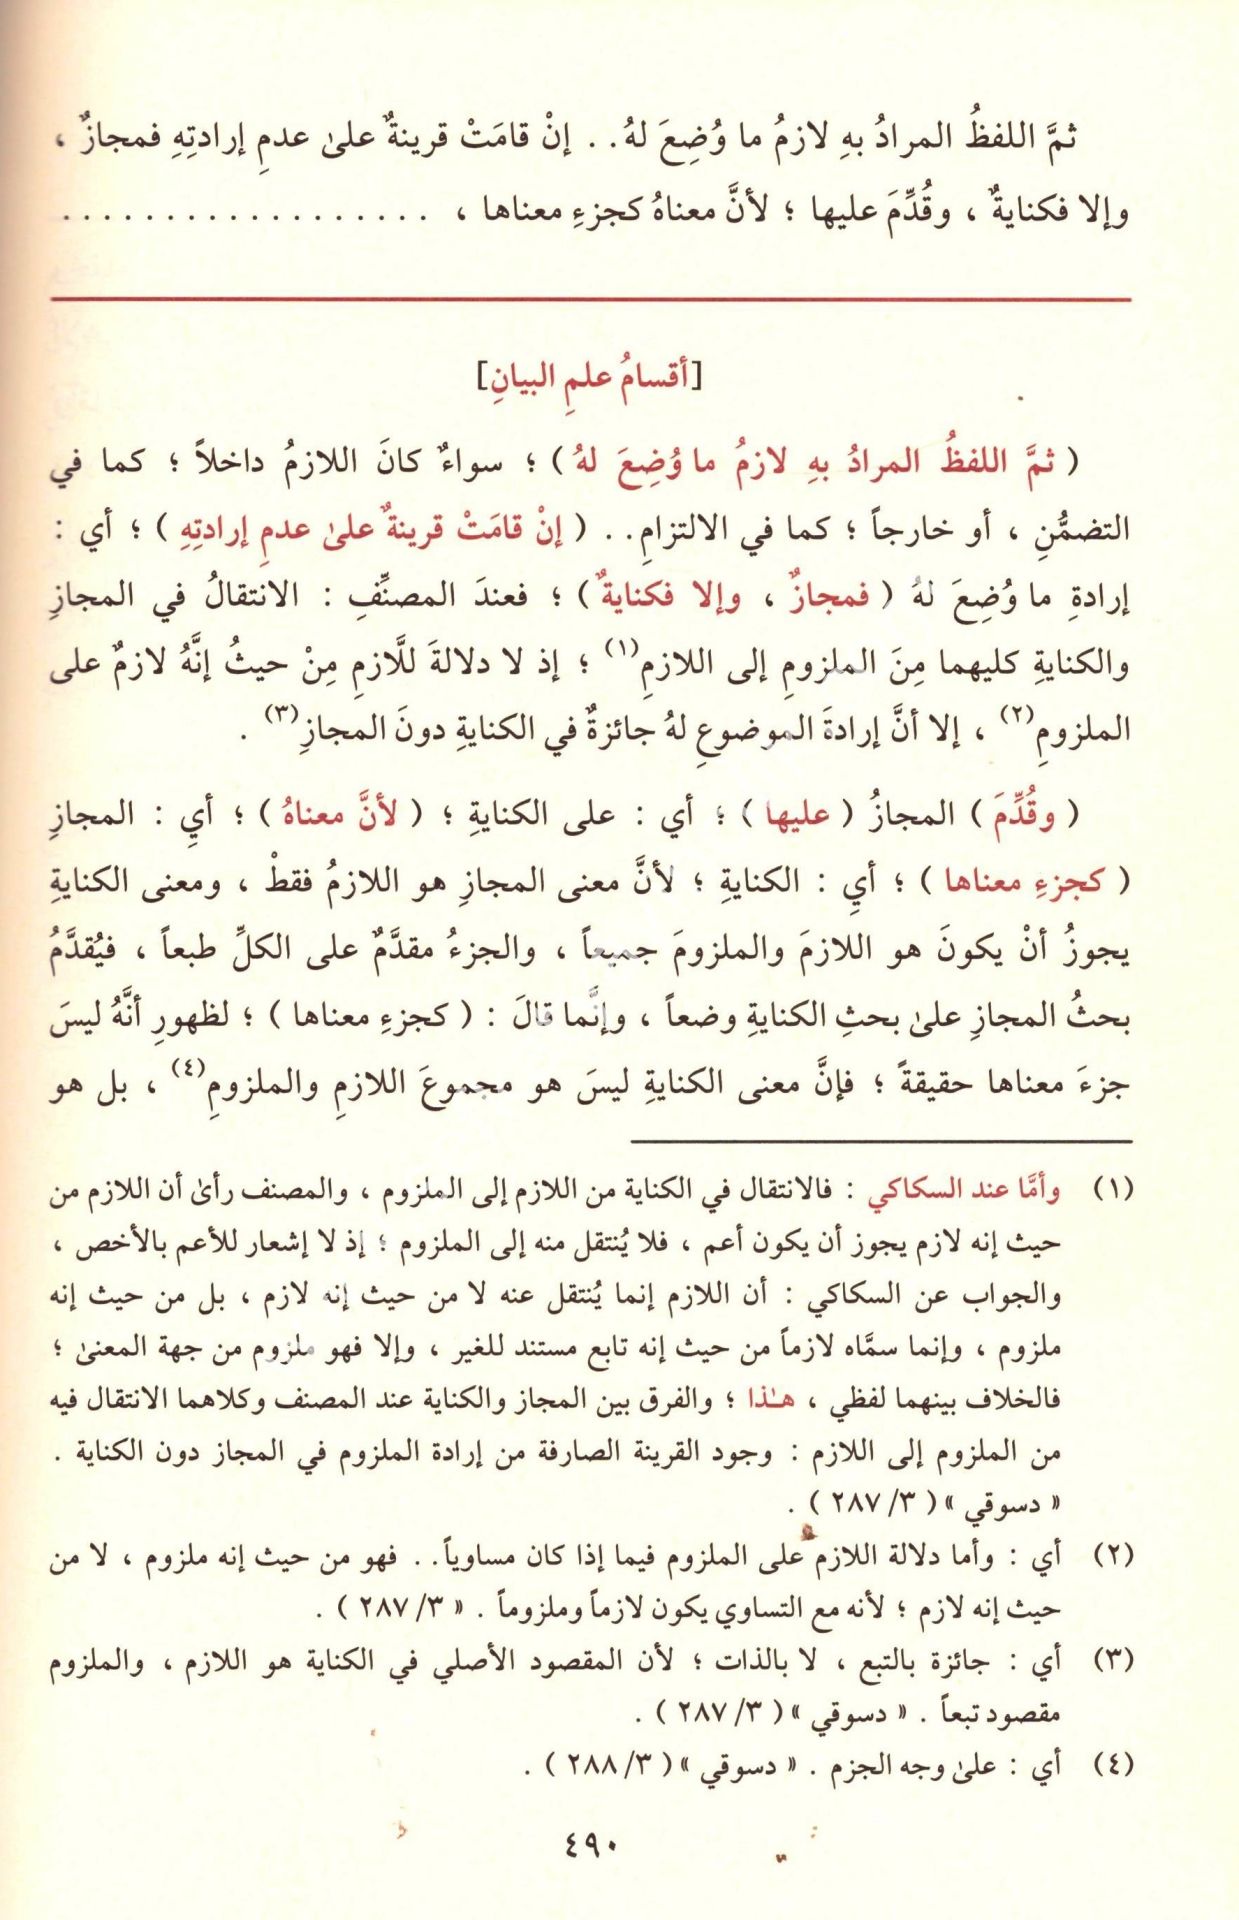 ثمَّ اللفظُ المرادُ بهِ لازمُ ما وُضِعَ لهُ . . إنْ قامَتْ قرينةٌ علىٰ عدمِ إرادتِهِ فمجازٌ ،
وإلا فكنايةٌ ، وقُدِّمَ عليها ؛ لأنَّ معناهُ كجزءِ معناها ، . . . . . . . . . . . . . . . . . .
[أقسامُ علمِ البيانِ]
( ثمَّ اللفظُ المرادُ بهِ لازمُ ما وُضِعَ لهُ ) ؛ سواءٌ كانَ اللازمُ داخلاً ؛ كما في
التضمُّنِ ، أو خارجاً ؛ كما في الالتزامِ . . ( إنْ قامَتْ قرينةٌ علىٰ عدمِ إرادتِهِ ) ؛ أي :
إرادةِ ما وُضِعَ لهُ ( فمجازٌ ، وإلا فكنايةٌ ) ؛ فعندَ المصنِّفِ : الانتقالُ في المجازِ
والكنايةِ كليهما مِنَ الملزومِ إلى اللازمِ(١) ؛ إذ لا دلالةَ للَّازمِ مِنْ حيثُ إنَّهُ لازمٌ على
الملزومِ(٢) ، إلا أنَّ إرادةَ الموضوعِ لهُ جائزةٌ في الكنايةِ دونَ المجازِ(٣) .
( وقُدِّمَ ) المجازُ ( عليها ) ؛ أي : على الكنايةِ ؛ ( لأنَّ معناهُ ) ؛ أيِ : المجازِ
( كجزءِ معناها ) ؛ أيِ : الكنايةِ ؛ لأنَّ معنى المجازِ هو اللازمُ فقطْ ، ومعنى الكنايةِ
يجوزُ أنْ يكونَ هو اللازمَ والملزومَ جميعاً ، والجزءُ مقدَّمٌ على الكلِّ طبعاً ، فيُقدَّمُ
بحثُ المجازِ علىٰ بحثِ الكنايةِ وضعاً ، وإنَّما قالَ : ( كجزءِ معناها ) ؛ لظهورِ أنَّهُ ليسَ
جزءَ معناها حقيقةً ؛ فإنَّ معنى الكنايةِ ليسَ هو مجموعَ اللازمِ والملزومِ(٤) ، بل هو
(١) وأمَّا عند السكاكي : فالانتقال في الكناية من اللازم إلى الملزوم ، والمصنف رأىٰ أن اللازم من
حيث إنه لازم يجوز أن يكون أعم ، فلا يُنتقل منه إلى الملزوم ؛ إذ لا إشعار للأعم بالأخص ،
والجواب عن السكاكي : أن اللازم إنما يُنتقل عنه لا من حيث إنه لازم ، بل من حيث إنه
ملزوم ، وإنما سمَّاه لازماً من حيث إنه تابع مستند للغير ، وإلا فهو ملزوم من جهة المعنىٰ ؛
فالخلاف بينهما لفظي ، هـٰذا ؛ والفرق بين المجاز والكناية عند المصنف وكلاهما الانتقال فيه
من الملزوم إلى اللازم : وجود القرينة الصارفة من إرادة الملزوم في المجاز دون الكناية .
« دسوقي » ( ٣/ ٢٨٧ ) .
(٢) أي : وأما دلالة اللازم على الملزوم فيما إذا كان مساوياً . . فهو من حيث إنه ملزوم ، لا من
حيث إنه لازم ؛ لأنه مع التساوي يكون لازماً وملزوماً . « ٣/ ٢٨٧ ) .
(٣) أي : جائزة بالتبع ، لا بالذات ؛ لأن المقصود الأصلي في الكناية هو اللازم ، والملزوم
مقصود تبعاً . « دسوقي » ( ٣/ ٢٨٧ ) .
(٤) أي : علىٰ وجه الجزم . « دسوقي » ( ٣/ ٢٨٨ ) .
٤٩٠